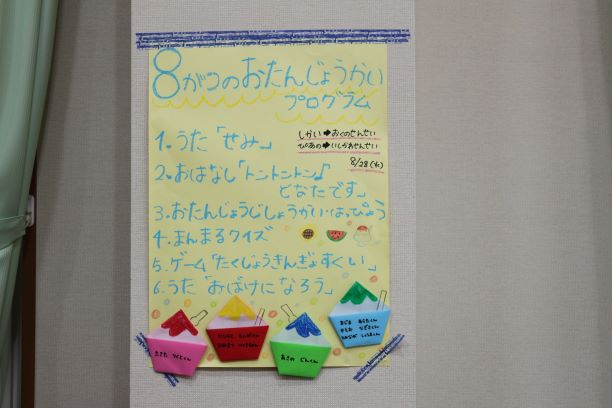 8がつのおたんじょうかい
プログラム
しかい➡おくのせんせい
ぴあの➡いしがおせんせい
8/28(水)
1.うた「せみ」
2.おはなし「トントントン♪
どなたです」
3.おたんじょうじしょうかい・はっぴょう
4.まんまるクイズ
5.ゲーム「たくじょうきんぎょすくい」
6.うた「おばけになろう」